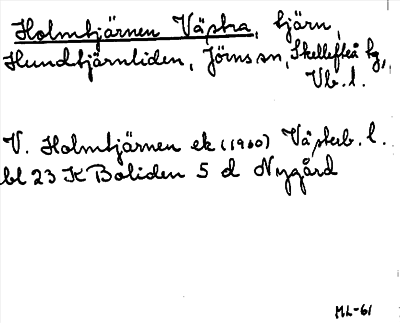 Holmtjärnen Västra, tjärn,
Hundtjärnliden, Jörns sn, Skellefteå tg,
Vb. l.
V. Holmtjärnen ek (1960) Västerb. l.
bl 23 K Boliden 5 d Nygård
ML-61